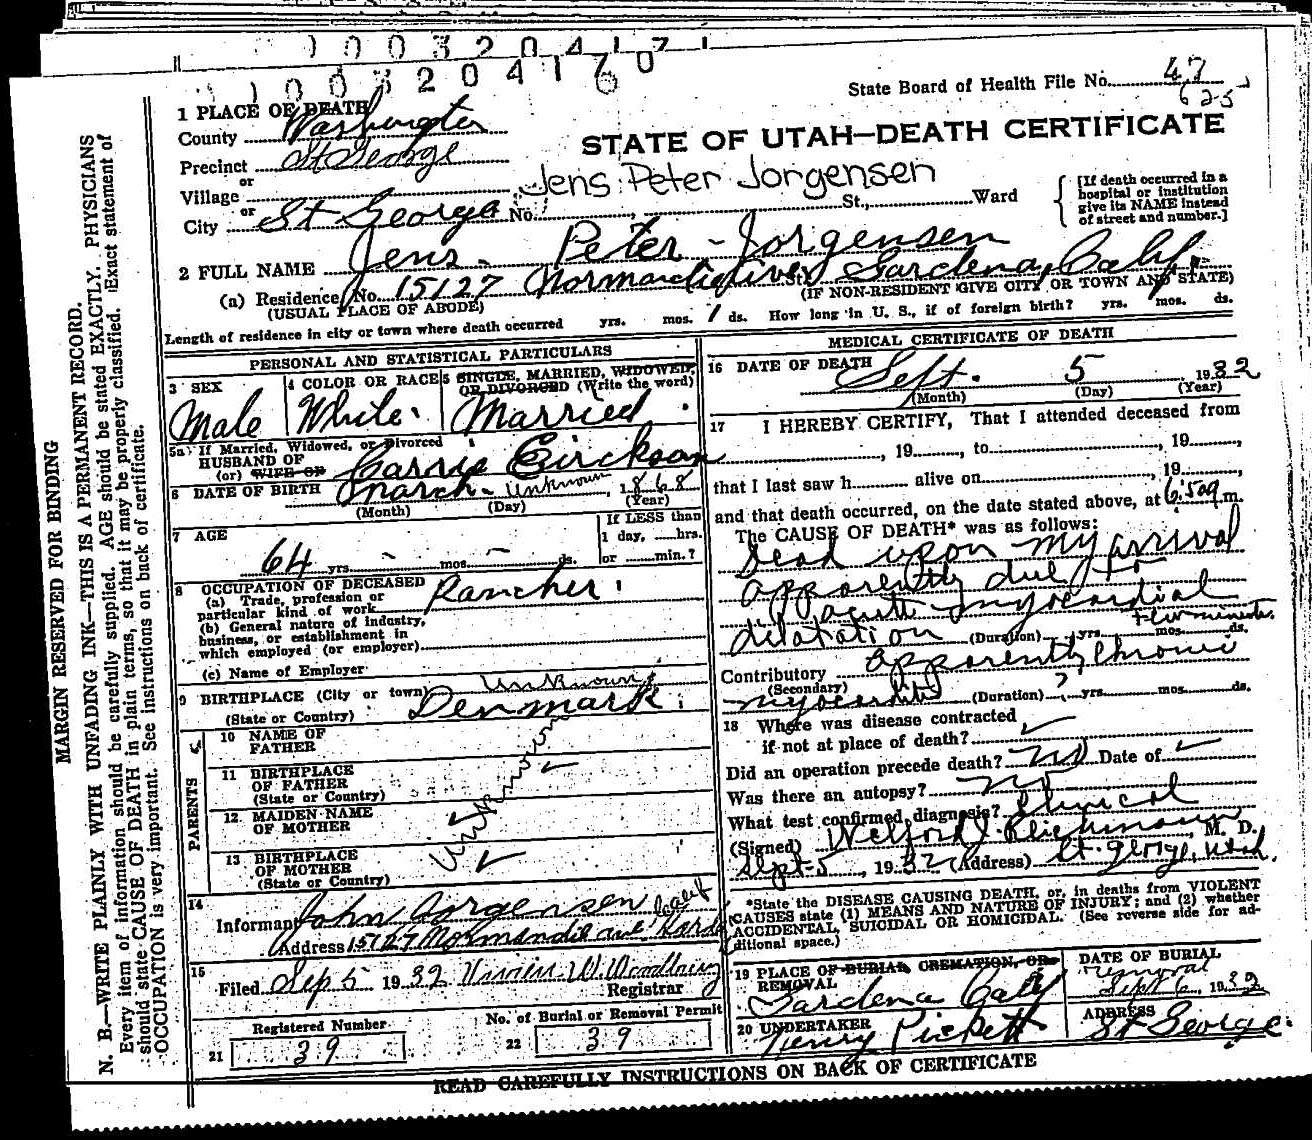 1003204171
1003204160
State Board of Health File No. 47
625
1 PLACE OF DEATH
County Washington
STATE OF UTAH—DEATH CERTIFICATE
Precinct St George
or
Village
Jens Peter Jorgensen
or
City St George No. St., Ward
[If death occurred in a
hospital or institution
give its NAME instead
of street and number.]
2 FULL NAME Jens Peter Jorgensen
(a) Residence No. 15127 Normandie Ave St. Gardena, Calif.
(USUAL PLACE OF ABODE) (IF NON-RESIDENT GIVE CITY OR TOWN AND STATE)
Length of residence in city or town where death occurred yrs. mos. 1 ds. How long in U. S., if of foreign birth? yrs. mos. ds.
PERSONAL AND STATISTICAL PARTICULARS
3 SEX
Male
4 COLOR OR RACE
White
5 SINGLE, MARRIED, WIDOWED,
OR DIVORCED (Write the word)
Married
5a If Married, Widowed, or Divorced
HUSBAND OF
(or) WIFE OF Carrie Eirckson
6 DATE OF BIRTH March - Unknown, 1868
(Month) (Day) (Year)
7 AGE
64 yrs. - mos. - ds.
If LESS than
1 day, hrs.
or min.?
8 OCCUPATION OF DECEASED
(a) Trade, profession or
particular kind of work Rancher
(b) General nature of industry,
business, or establishment in
which employed (or employer)
(c) Name of Employer
9 BIRTHPLACE (City or town) Unknown
(State or Country) Denmark
PARENTS
10 NAME OF
FATHER
11 BIRTHPLACE
OF FATHER
(State or Country)
12 MAIDEN NAME
OF MOTHER
13 BIRTHPLACE
OF MOTHER
(State or Country)
Unknown
14
Informant John Jorgensen Calif
Address 15127 Normandie ave
15
Filed Sep 5 1932
Registrar
Registered Number
21 39
No. of Burial or Removal Permit
22 39
MEDICAL CERTIFICATE OF DEATH
16 DATE OF DEATH
Sept. 5 1932
(Month) (Day) (Year)
17 I HEREBY CERTIFY, That I attended deceased from
, 19, to, 19,
that I last saw h alive on, 19,
and that death occurred, on the date stated above, at 6:50a m.
The CAUSE OF DEATH* was as follows:
Dead upon my arrival
apparently due to
acute myocardial
dilatation (Duration) yrs. mos. ds.
few minutes
Contributory apparently chronic
(Secondary)
myocarditis (Duration) ? yrs. mos. ds.
18 Where was disease contracted
if not at place of death?
Did an operation precede death? No Date of
Was there an autopsy? No
What test confirmed diagnosis? Clinical
(Signed) Wilford J. Reichmann, M. D.
Sept-5, 1932 (Address) St. George, Utah.
*State the DISEASE CAUSING DEATH, or, in deaths from VIOLENT
CAUSES state (1) MEANS AND NATURE OF INJURY; and (2) whether
ACCIDENTAL, SUICIDAL OR HOMICIDAL. (See reverse side for ad-
ditional space.)
19 PLACE OF BURIAL, CREMATION, OR
REMOVAL
Gardena Calif
DATE OF BURIAL
removal
Sept 6, 1932
20 UNDERTAKER
Henry Pickett
ADDRESS
St George
READ CAREFULLY INSTRUCTIONS ON BACK OF CERTIFICATE
MARGIN RESERVED FOR BINDING
N. B.—WRITE PLAINLY WITH UNFADING INK—THIS IS A PERMANENT RECORD.
Every item of information should be carefully supplied. AGE should be stated EXACTLY. PHYSICIANS
should state CAUSE OF DEATH in plain terms, so that it may be properly classified. Exact statement of
OCCUPATION is very important. See instructions on back of certificate.